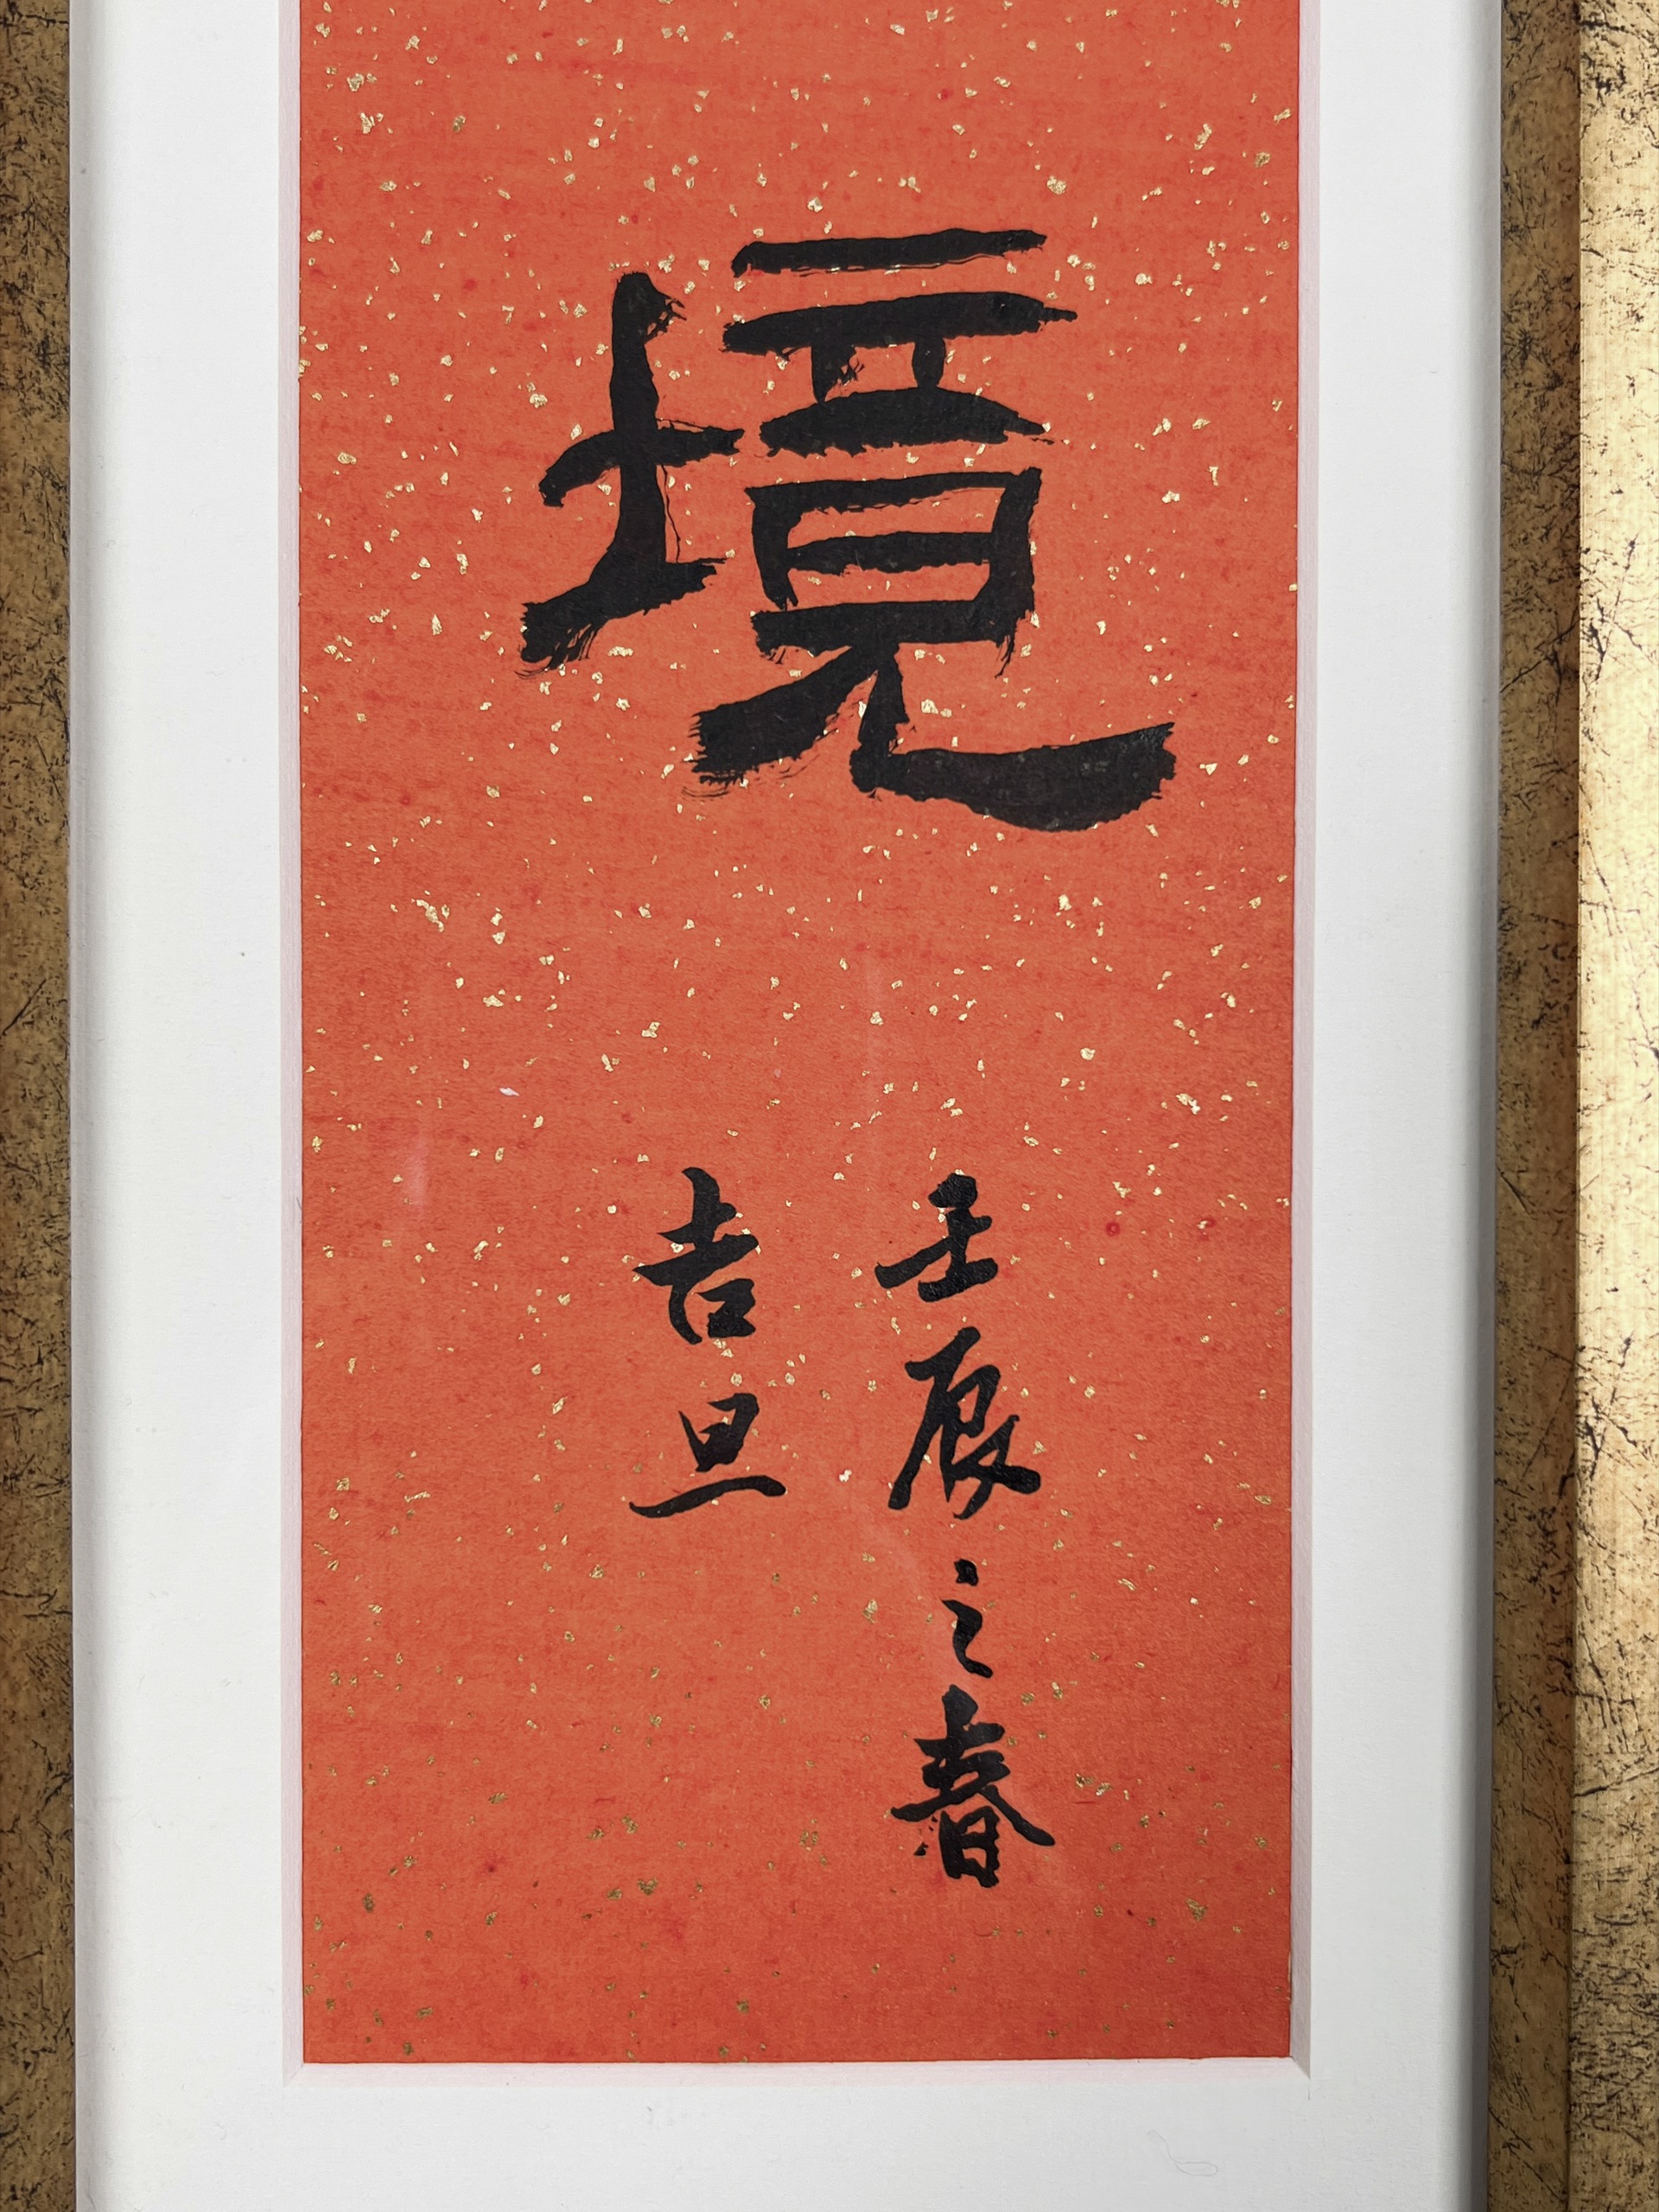 境
壬辰之春
吉旦